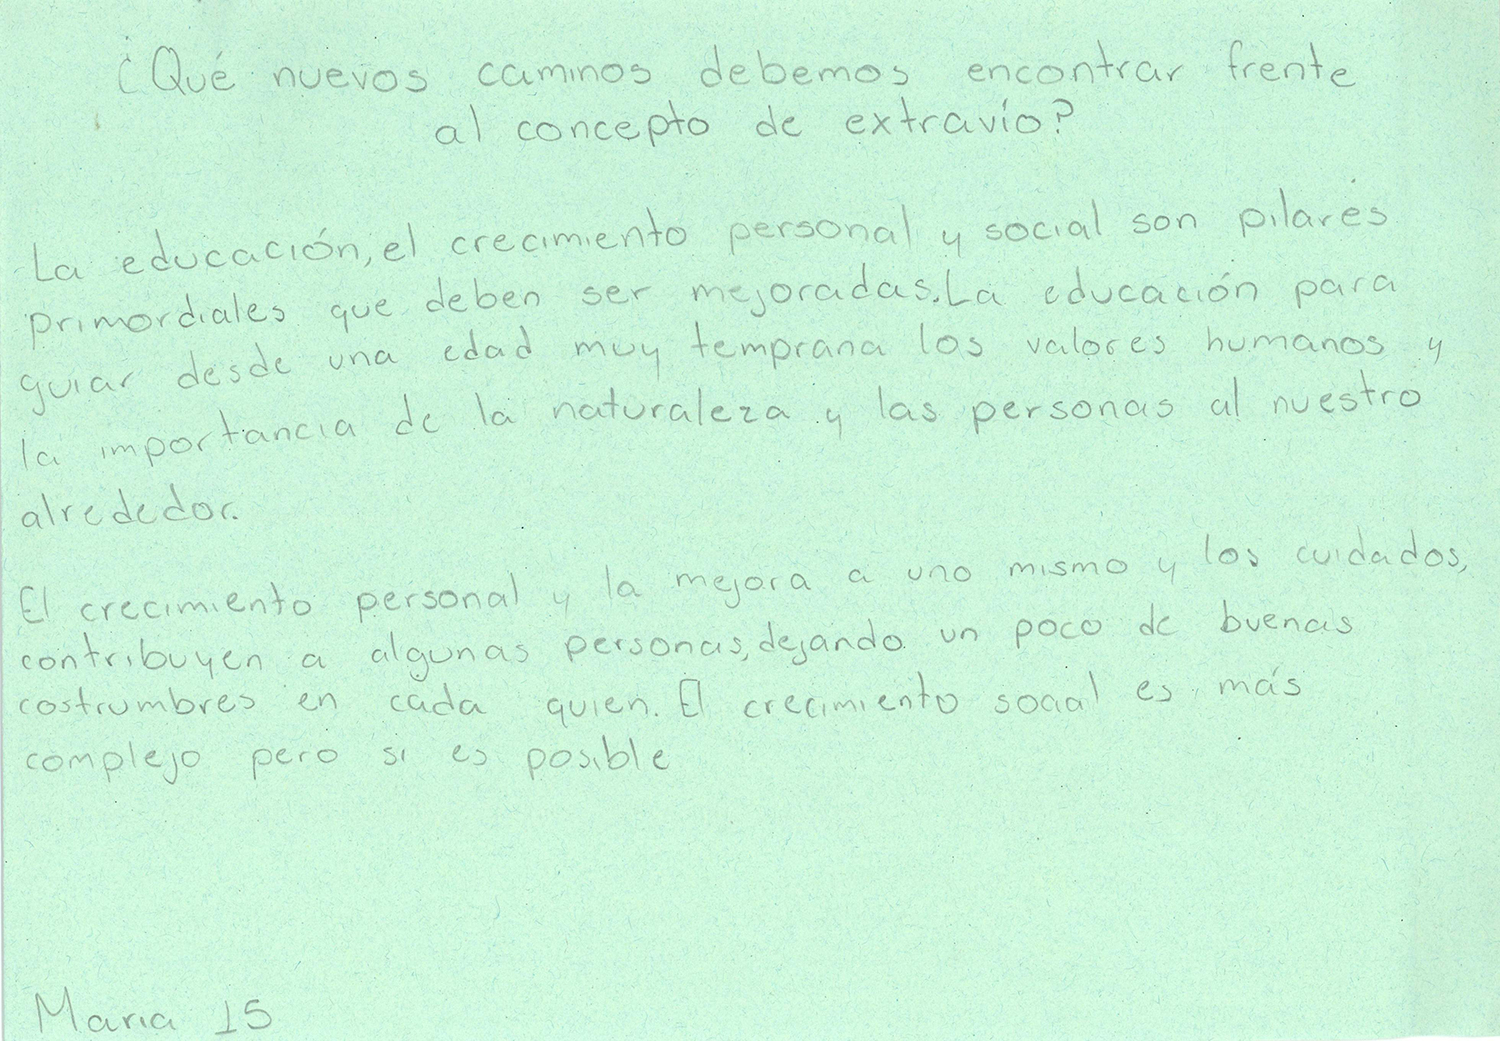 ¿Qué nuevos caminos debemos encontrar frente
al concepto de extravío?
La educación, el crecimiento personal y social son pilares
primordiales que deben ser mejoradas. La educación para
guiar desde una edad muy temprana los valores humanos y
la importancia de la naturaleza y las personas al nuestro
alrededor.
El crecimiento personal y la mejora a uno mismo y los cuidados,
contribuyen a algunas personas, dejando un poco de buenas
costrumbres en cada quien. El crecimiento social es más
complejo pero si es posible
Maria 15